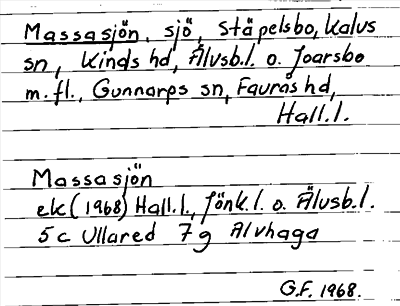 Massasjön, sjö, Stäpelsbo, Kalvs
sn, Kinds hd, Älvsb.l. o. Joarsbo
m.fl., Gunnarps sn, Faurås hd,
Hall.l.
Massasjön
ek (1968) Hall.l., Jönk.l. o. Älvsb.l.
5c Ullared 7g Alvhaga
G.F. 1968.